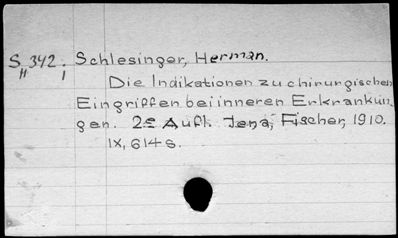 S. 342. Schlesinger, Herman.
H I
Die Indikationen zu chirurgischen
Eingriffen bei inneren Erkrankun-
gen. 2e Aufl. Jena, Fischer, 1910.
IX, 614 s.